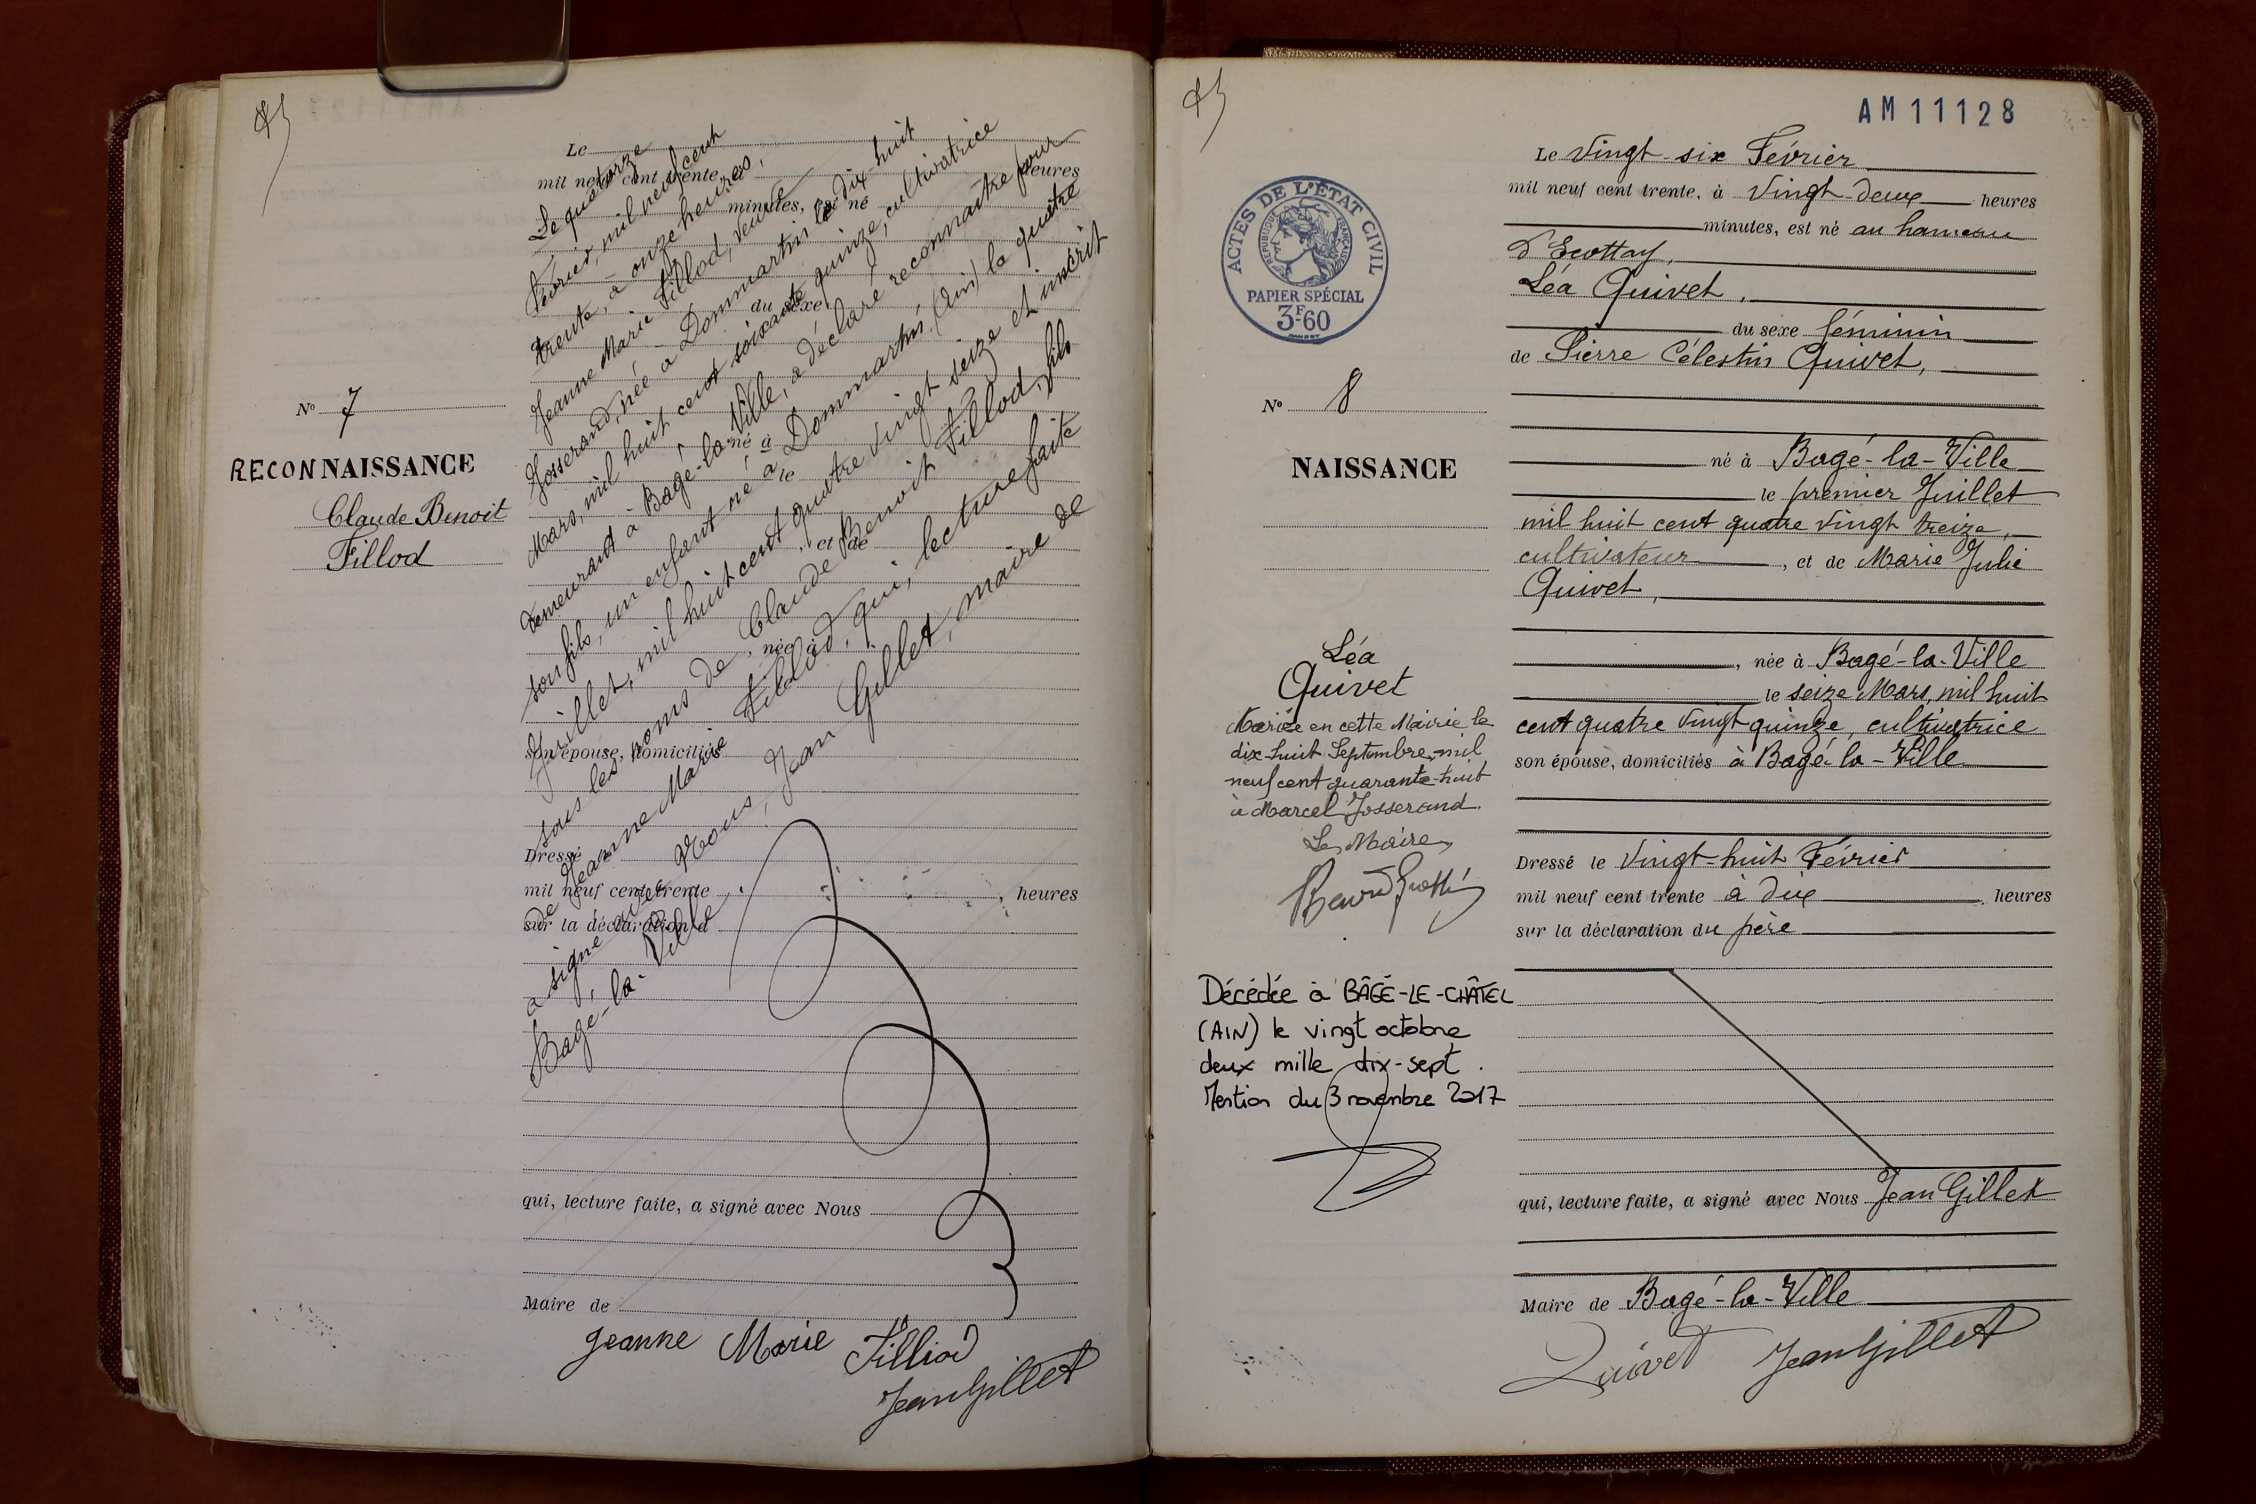 Le
mil neuf cent trente, à heures
minutes, est né
du sexe
né à
le
, et de
, née à
son épouse, domiciliés
Dressé le
mil neuf cent trente , heures
sur la déclaration d
qui, lecture faite, a signé avec Nous
Maire de
Nº 7
RECONNAISSANCE
Claude Benoit
Fillod
Le quatorze
Février, mil neuf cent
trente, à onze heures,
Jeanne Marie Fillod, veuve
Josserand, née à Dommartin le dix-huit
Mars mil huit cent soixante quinze, cultivatrice
demeurant à Bagé-la-Ville, a déclaré reconnaître pour
son fils, un enfant né à Dommartin (Ain) le quatre
Juillet, mil huit cent quatre vingt seize et inscrit
sous les noms de Claude Benoit Fillod, fils
de Jeanne Marie Fillod, qui, lecture faite
a signé avec Nous, Jean Gillet, maire de
Bagé-la-Ville
Jeanne Marie Filliod
Jean Gillet
AM 11128
ACTES DE L'ÉTAT CIVIL
RÉPUBLIQUE FRANÇAISE
PAPIER SPÉCIAL
3F60
Nº 8
NAISSANCE
Léa
Quivet
Mariée en cette Mairie le
dix-huit Septembre mil
neuf cent quarante-huit
à Marcel Josserand.
Le Maire,
Décédée à BÂGÉ-LE-CHÂTEL
(AIN) le vingt octobre
deux mille dix-sept.
Mention du 3 novembre 2017
Le vingt-six Février
mil neuf cent trente, à vingt deux heures
minutes, est né au hameau
d'Ecottay,
Léa Quivet,
du sexe féminin
de Pierre Célestin Quivet,
né à Bagé-la-Ville
le premier Juillet
mil huit cent quatre vingt treize
cultivateur , et de Marie Julie
Quivet,
, née à Bagé-la-Ville
le seize Mars, mil huit
cent quatre vingt quinze, cultivatrice
son épouse, domiciliés à Bagé-la-Ville
Dressé le vingt-huit Février
mil neuf cent trente à dix , heures
sur la déclaration du père
qui, lecture faite, a signé avec Nous Jean Gillet
Maire de Bagé-la-Ville
Quivet Jean Gillet